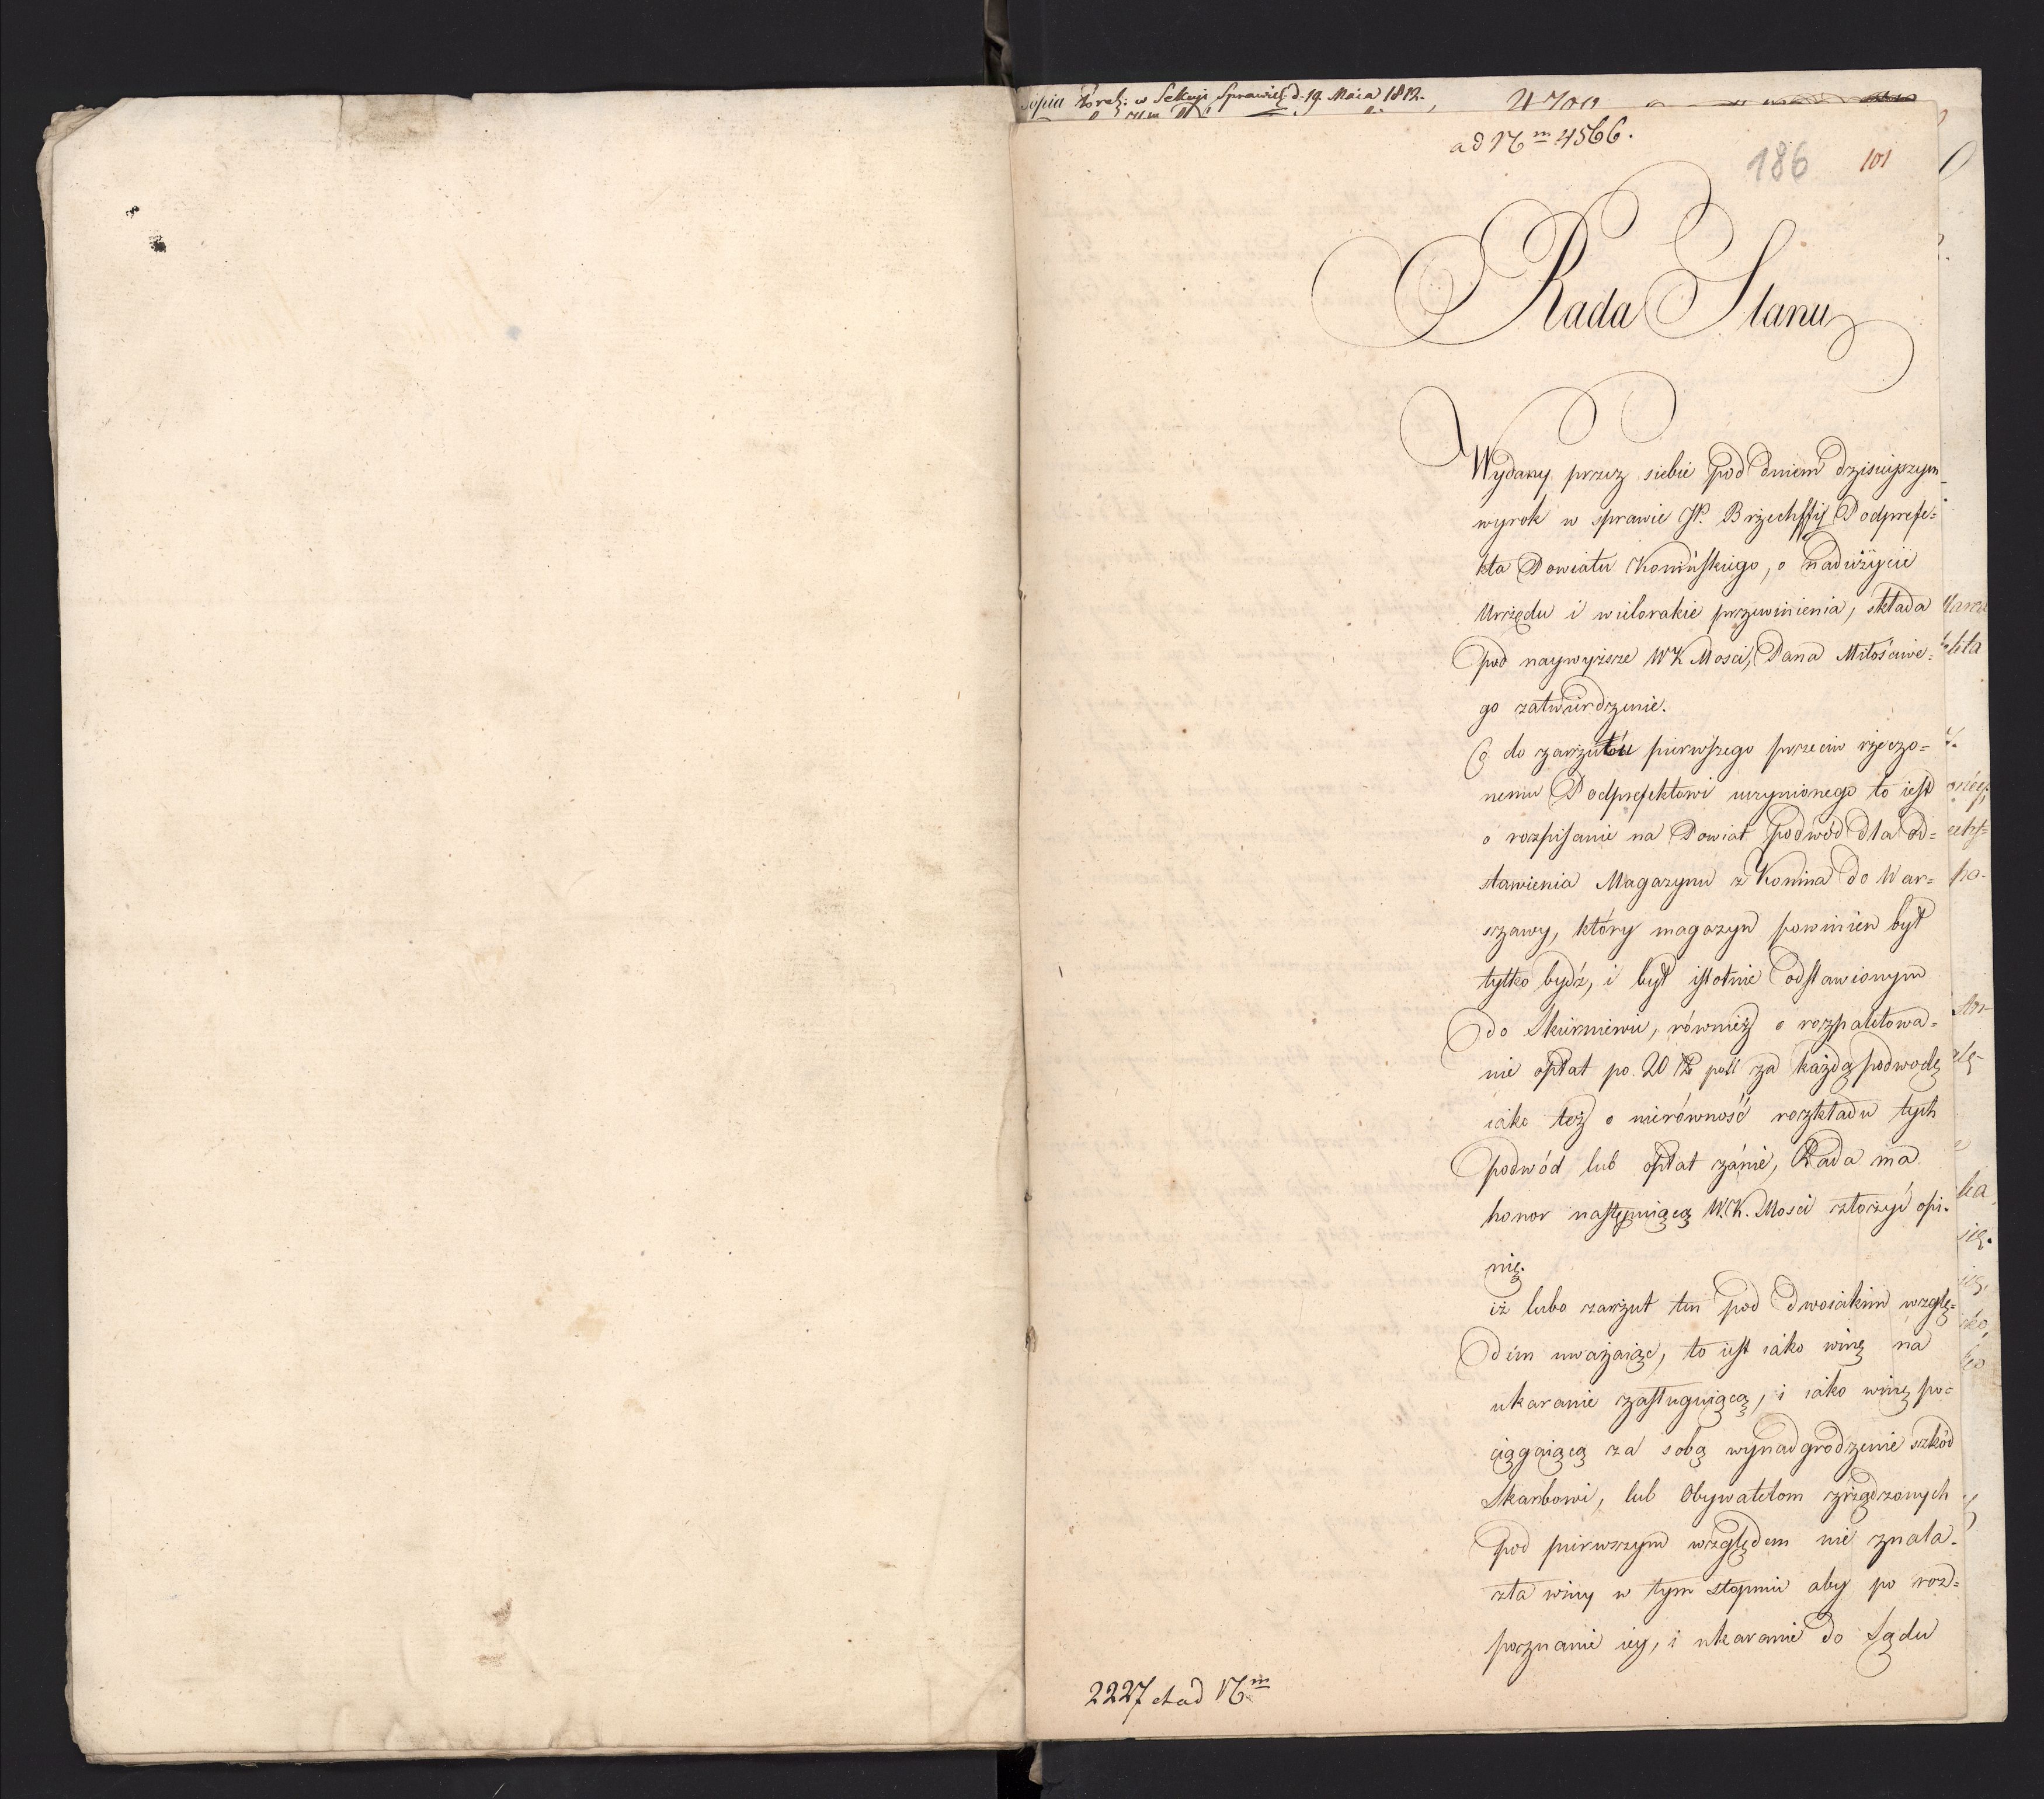 kopia
w Sekcyi Sprawied. d. 19 Maia 1812.
ad Nm 4566.
186
101
Rada Stanu
Wydany przez siebie pod dniem dzisieyszym
wyrok w sprawie JP. Brzechffy Podprefe=
kta Powiatu Konińskiego, o nadużycie
Urzędu i wielorakie przewinienia, składa
pod naywyższe WK Mości, Pana Miłościwe=
go zatwierdzenie.
Co do zarzutu pierwszego przeciw rzeczo=
nemu Podprefektowi uczynionego to iest
o rozpisanie na Powiat podwód dla od=
stawienia Magazynu z Konina do War=
szawy, który magazyn powinien był
tylko bydź, i był istotnie odstawionym
do Skierniewic, również o rozpaletowa=
nie opłat po 20 pol za każdą podwodę
iako też o nierówność rozkładu tych
podwód lub opłat zánie, Rada ma
honor następuiącą W.K. Mości złożyć opi=
nię.
iż lubo zarzut ten pod dwoiakim wzglę=
dem uważaiąc, to iest iako winę na
ukaranie zasługuiącą, i iako winę po=
ciągaiącą za sobą wynadgrodzenie szkód
Skarbowi, lub Obywatelom zrządzonych
pod pierwszym względem nie znala=
zła winy w tym stopniu aby po roz=
poznanie iey, i ukaranie do Sądu
2227 et ad Nm